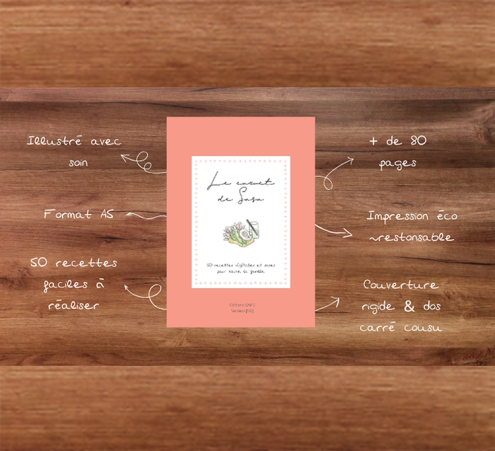 Illustré avec
soin
Format A5
50 recettes
faciles à
réaliser
Le carnet
de Susu
50 recettes
pour
la
+ de 80
pages
Impression éco
-restonsable
Couverture
rigide & dos
carré cousu